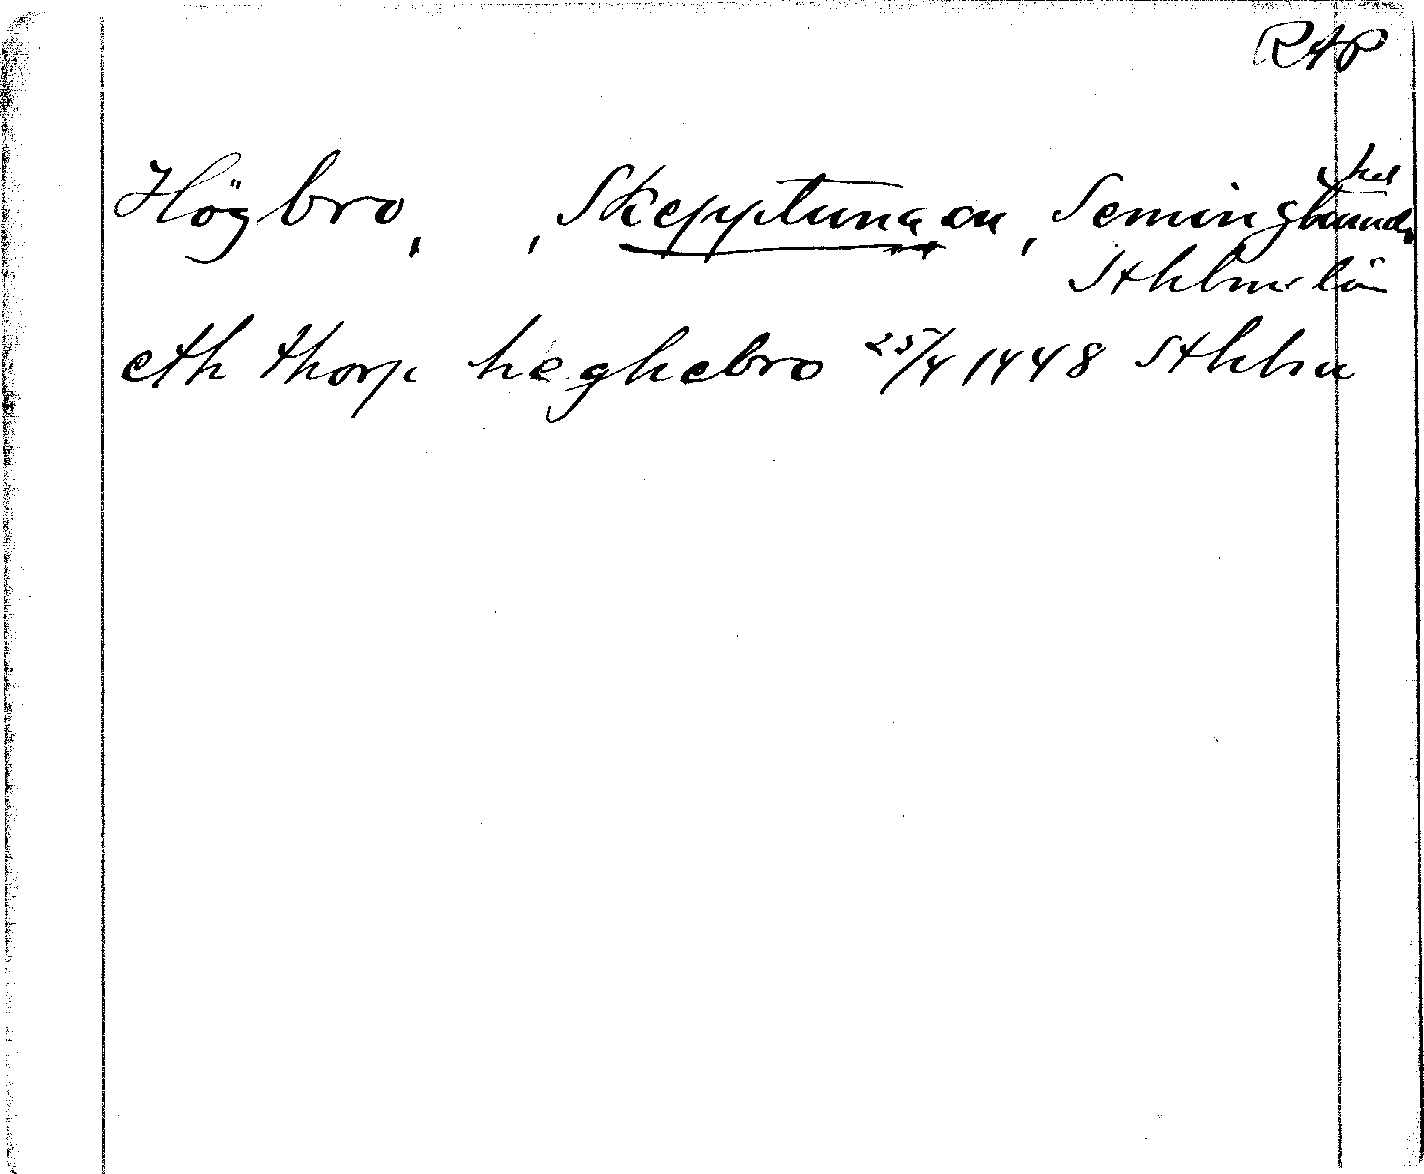 RAP
Högbro, , Skepptuna sn, Seminghunds hd
Sthlms län
eth thorp høghebro 25/4 1448 Sthlm